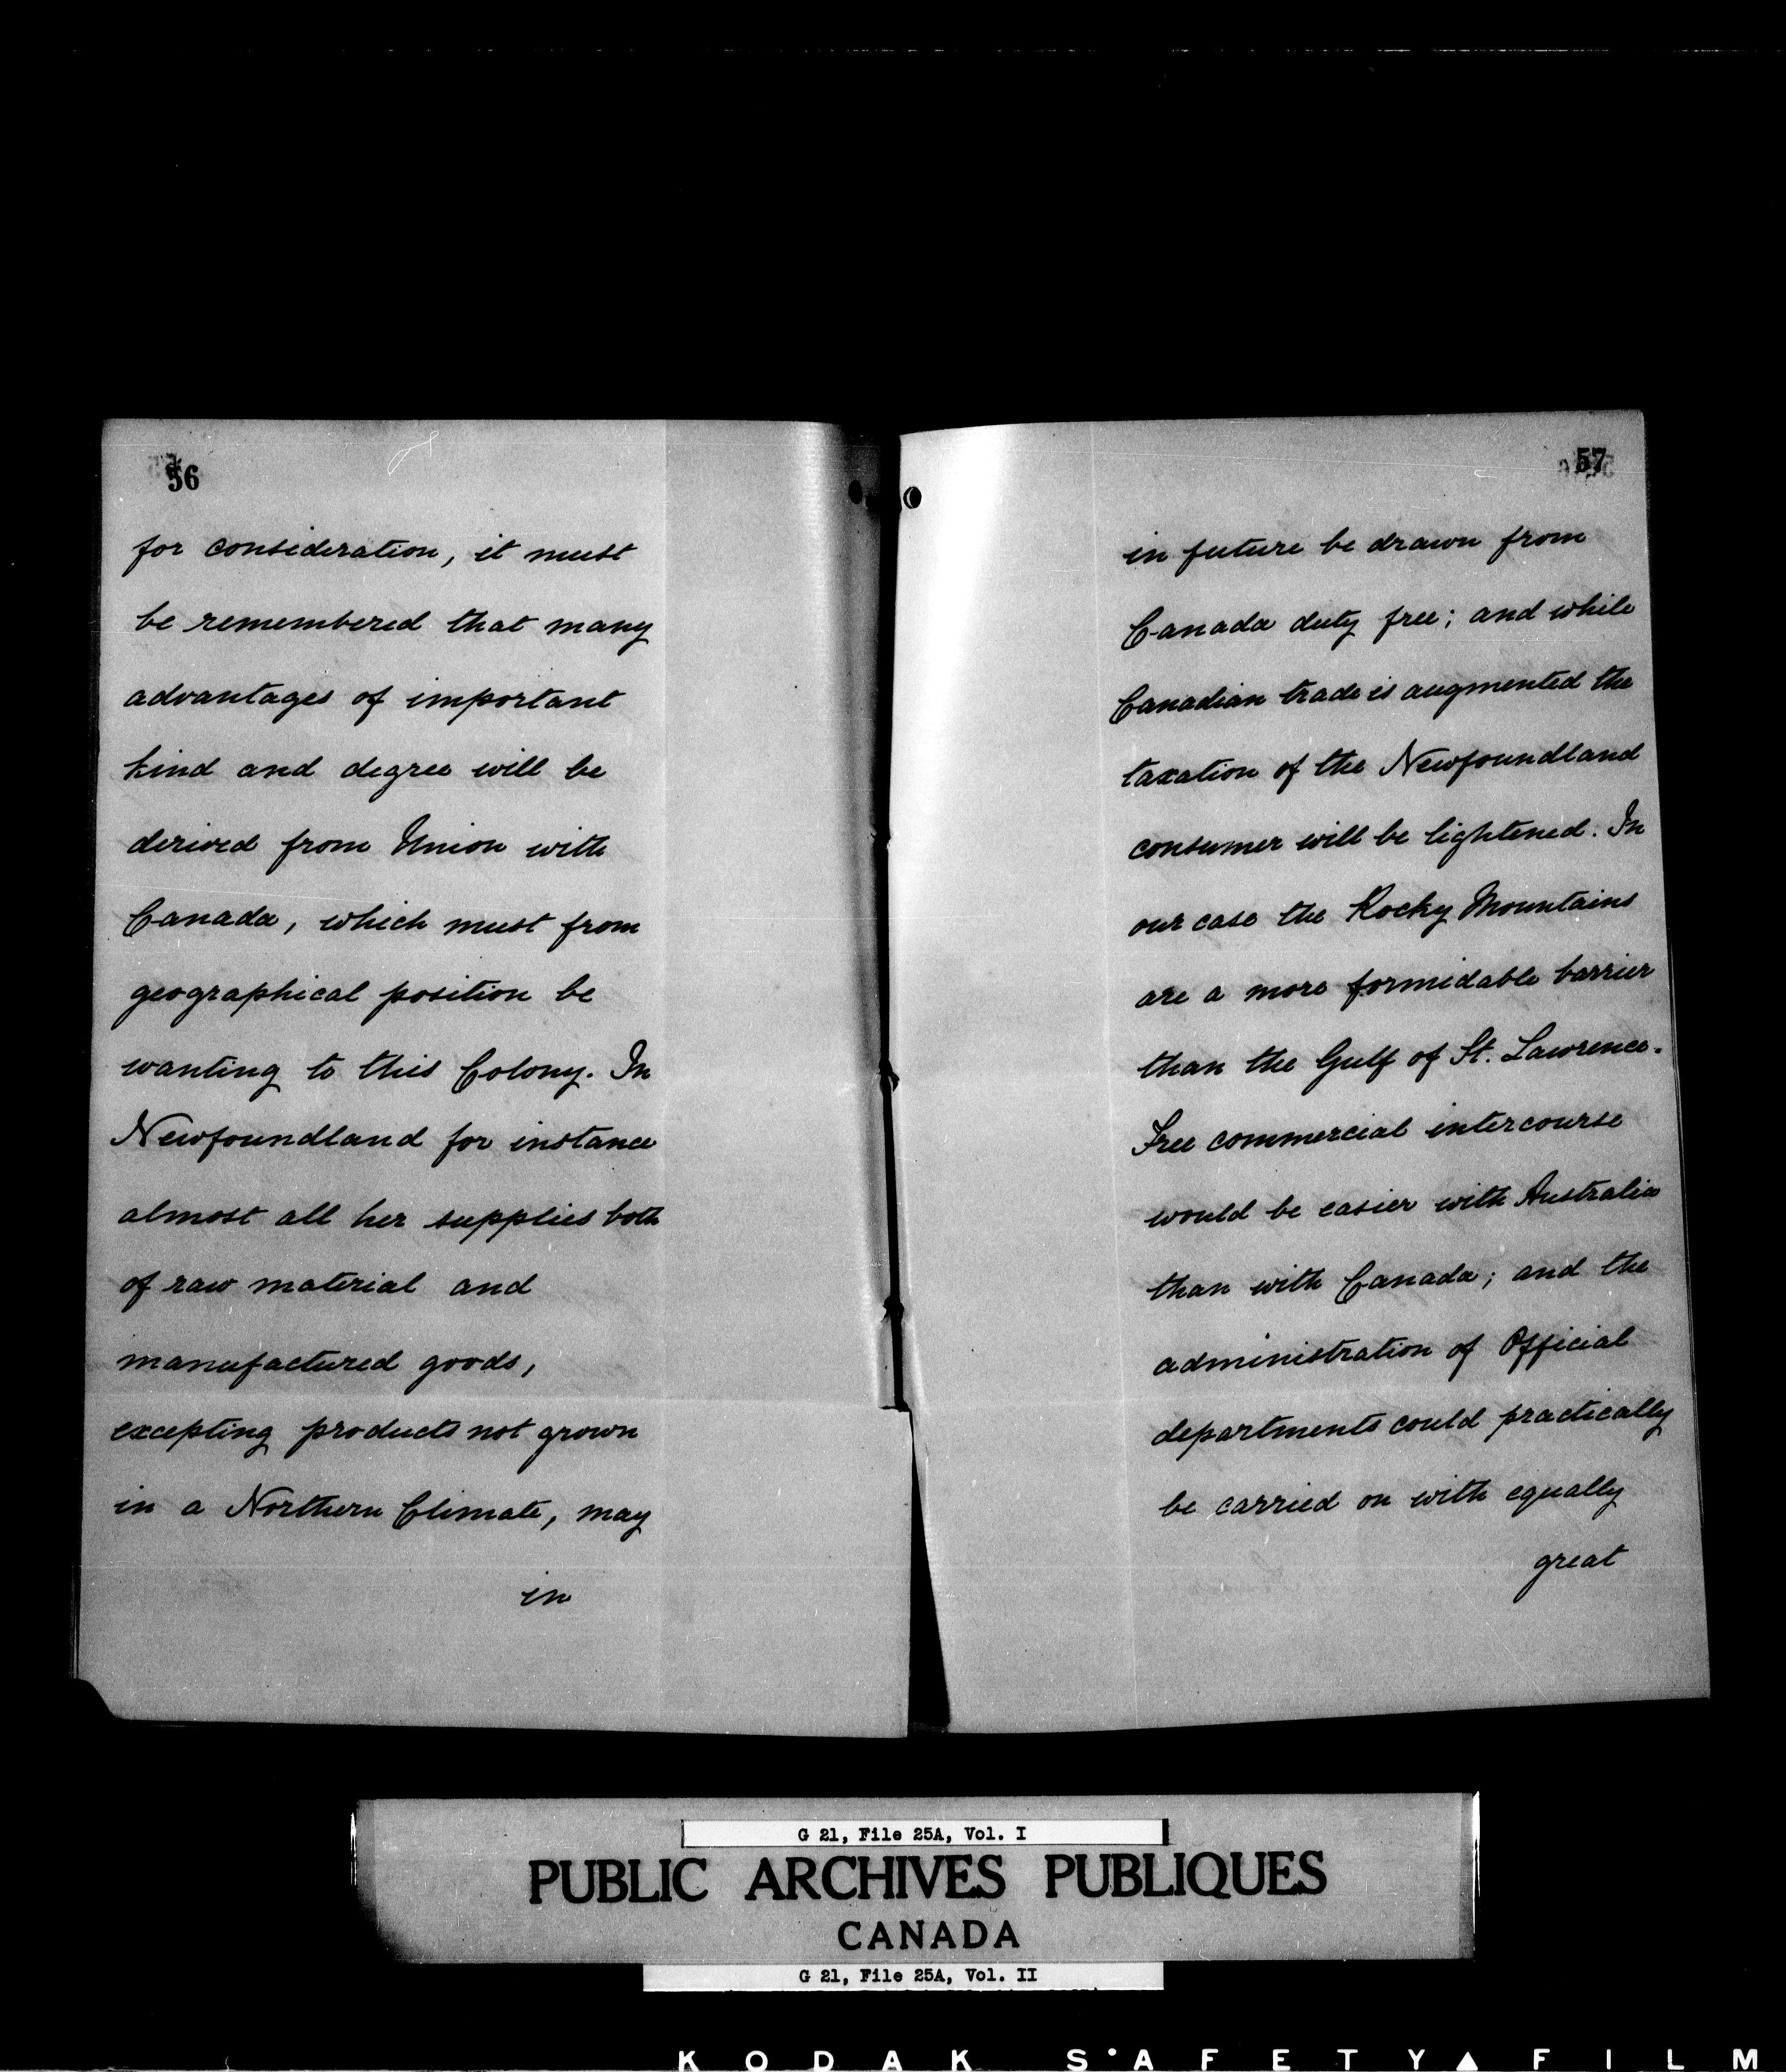 56
for consideration, it must
be remembered that many
advantages of important
kind and degree will be
derived from Union with
Canada, which must from
geographical position be
wanting to this Colony. In
Newfoundland for instance
almost all her supplies both
of raw material and
manufactured goods,
excepting products not grown
in a Northern Climate, may
in
57
in future be drawn from
Canada duty free; and while
Canadian trade is augmented the
taxation of the Newfoundland
consumer will be lightened. In
our case the Rocky Mountains
are a more formidable barrier
than the Gulf of St. Lawrence.
Free commercial intercourse
would be easier with Australia
than with Canada; and the
administration of Official
departments could practically
be carried on with equally
great
G 21, File 25A, Vol. I
PUBLIC ARCHIVES PUBLIQUES
CANADA
G 21, File 25A, Vol. II
KODAK SAFETY FILM